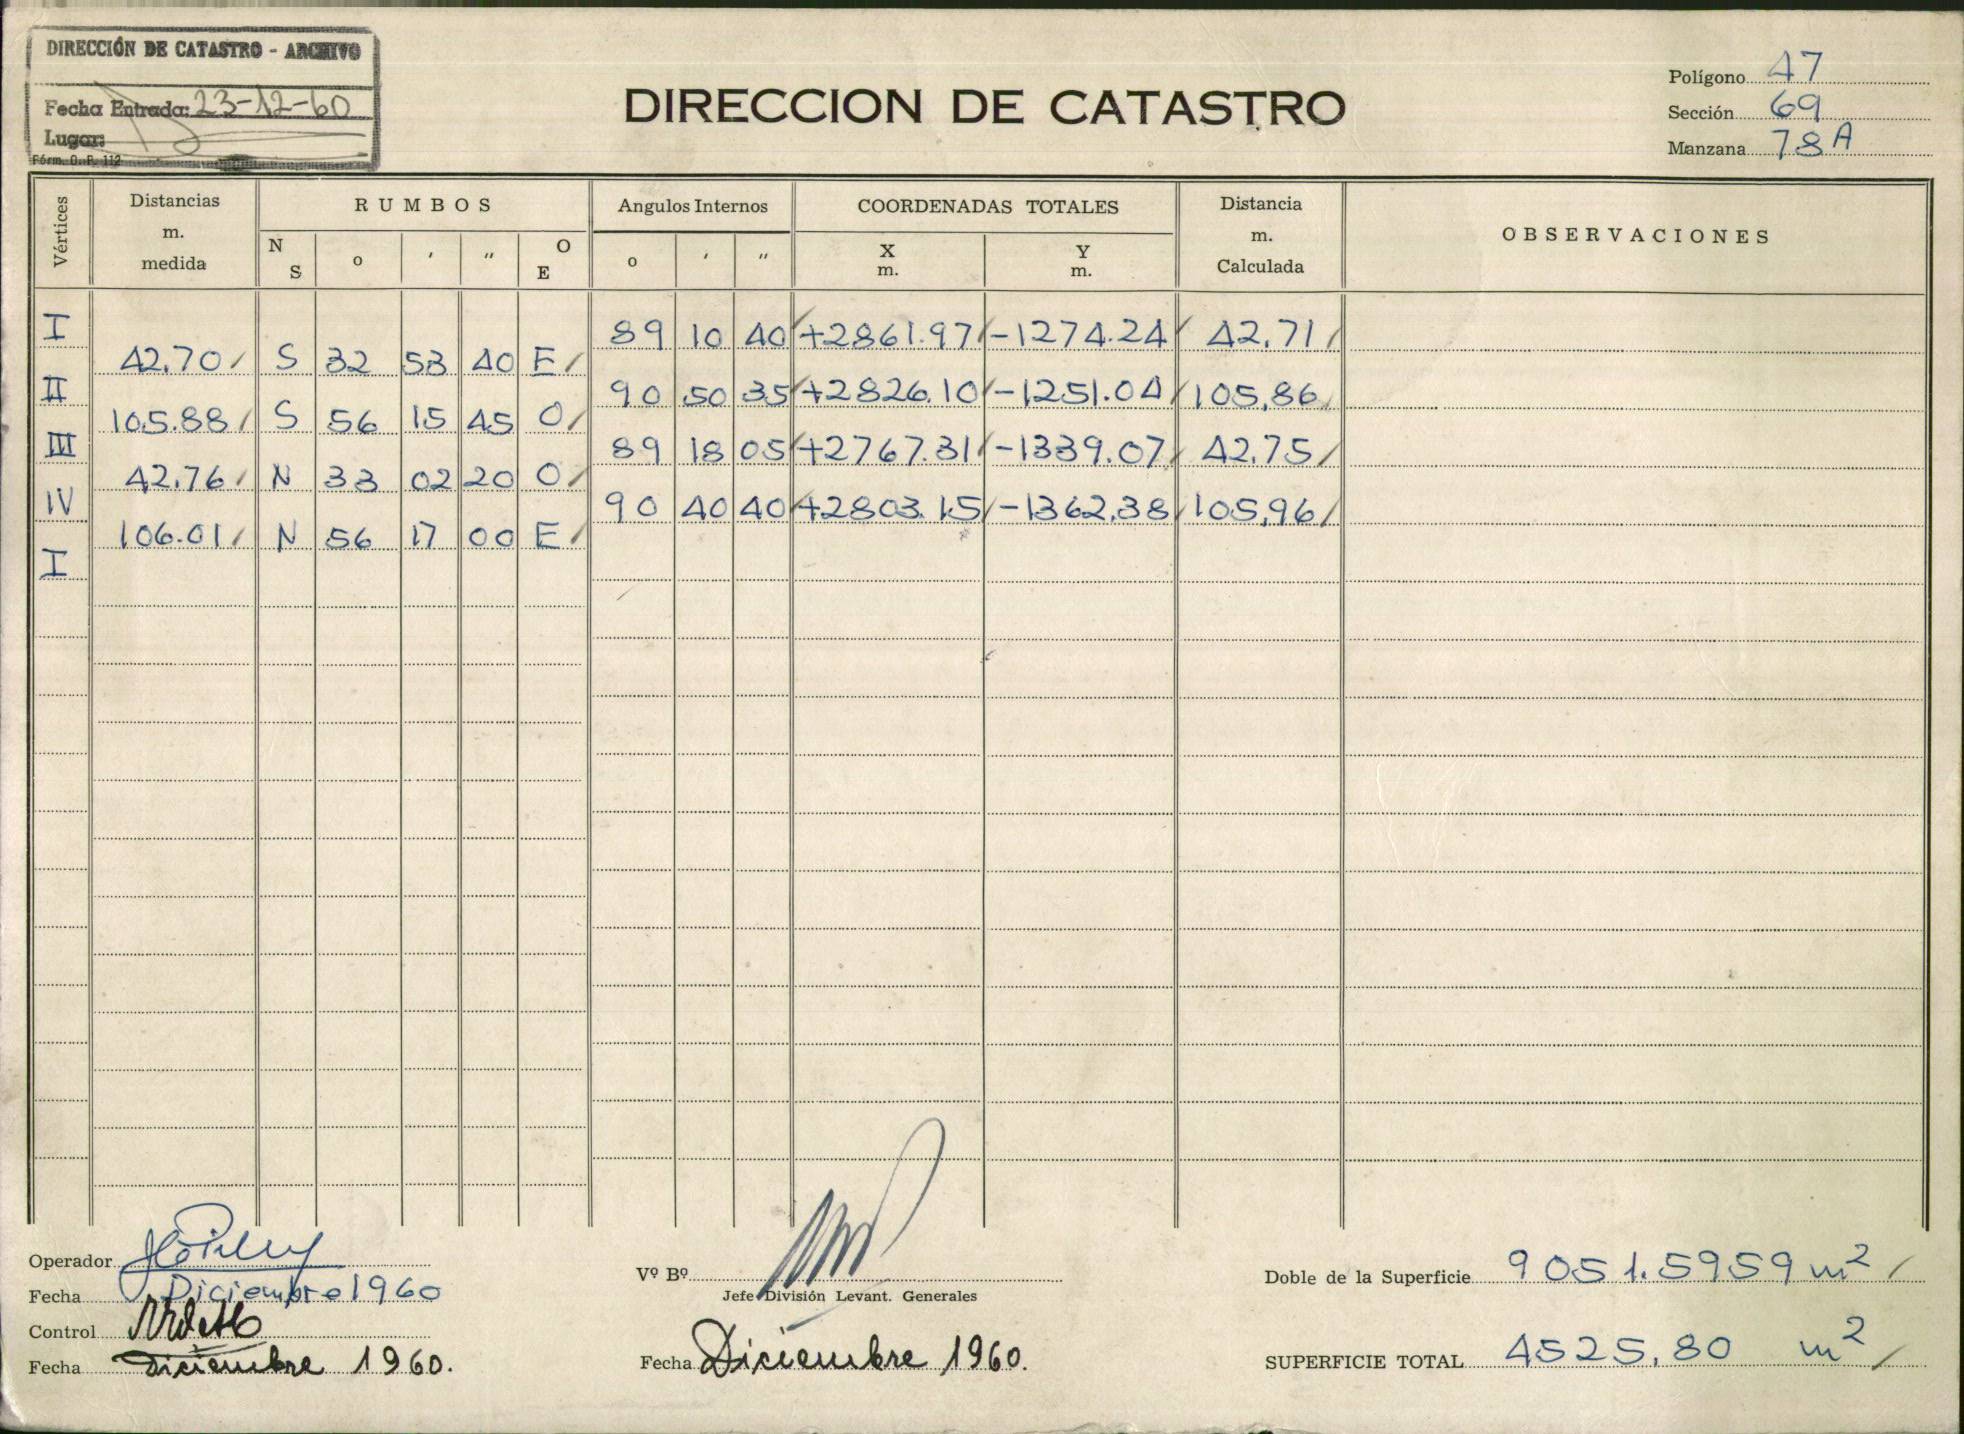 DIRECCIÓN DE CATASTRO - ARCHIVO
Fecha Entrada: 23-12-60
Lugar:
Fórm. O. P. 112
DIRECCION DE CATASTRO
Polígono 47
Sección 69
Manzana 78A
Vértices
Distancias m. medida
RUMBOS
N S o ' " O E
Angulos Internos
o ' "
COORDENADAS TOTALES
X m. Y m.
Distancia m. Calculada
OBSERVACIONES
I 89 10 40 +2861.97 -1274.24 42.71
42.70 S 32 53 40 E
II 90 50 35 +2826.10 -1251.04 105.86
105.88 S 56 15 45 O
III 89 18 05 +2767.31 -1339.07 42.75
42.76 N 33 02 20 O
IV 90 40 40 +2803.15 -1362.38 105.96
106.01 N 56 17 00 E
I
Operador
Fecha Diciembre 1960
Control
Fecha Diciembre 1960.
Vº Bº
Jefe División Levant. Generales
Fecha Diciembre 1960.
Doble de la Superficie 9051.5959 m²
SUPERFICIE TOTAL 4525.80 m²